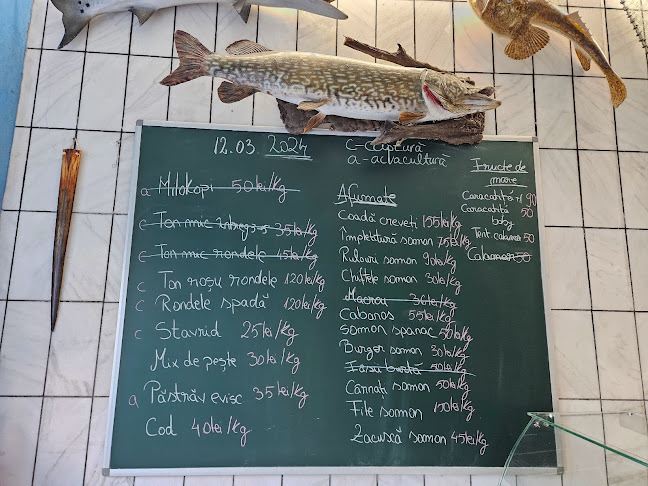 12.03. 2024
C-captură
a-acvacultură
a Milokopi 50 lei/kg
c Ton mic întreg 35 lei/kg
c Ton mic rondele 45 lei/kg
c Ton roșu rondele 120 lei/kg
c Rondele spadă 120 lei/kg
c Stavrid 25 lei/kg
Mix de pește 30 lei/kg
a Păstrăv evisc 35 lei/kg
Cod 40 lei/kg
Afumate
Coadă creveți 155 lei/kg
Împletitură somon 75 lei/kg
Rulouri somon 90 lei/kg
Chiftele somon 30 lei/kg
Macrou 36 lei/kg
Cabanos 55 lei/kg
somon spanac 50 lei/kg
Burger somon 30 lei/kg
burtă 70 lei/kg
Cârnați somon 50 lei/kg
File somon lei/kg
Zacuscă somon 45 lei/kg
Fructe de
mare
Caracatiță 90
Caracatiță 50
baby
Tent. calamar 50
Calamar 50